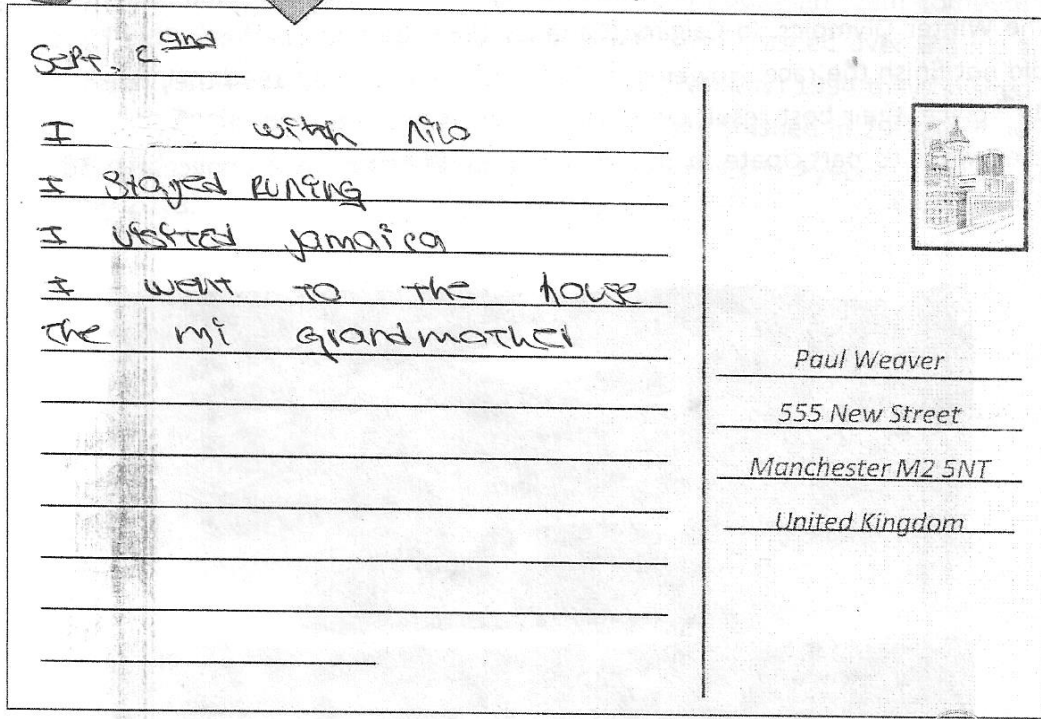 Sept. 2nd
I with nilo
I stayed runing
I visited jamaica
I went to the house
the mi grandmother
Paul Weaver
555 New Street
Manchester M2 5NT
United Kingdom